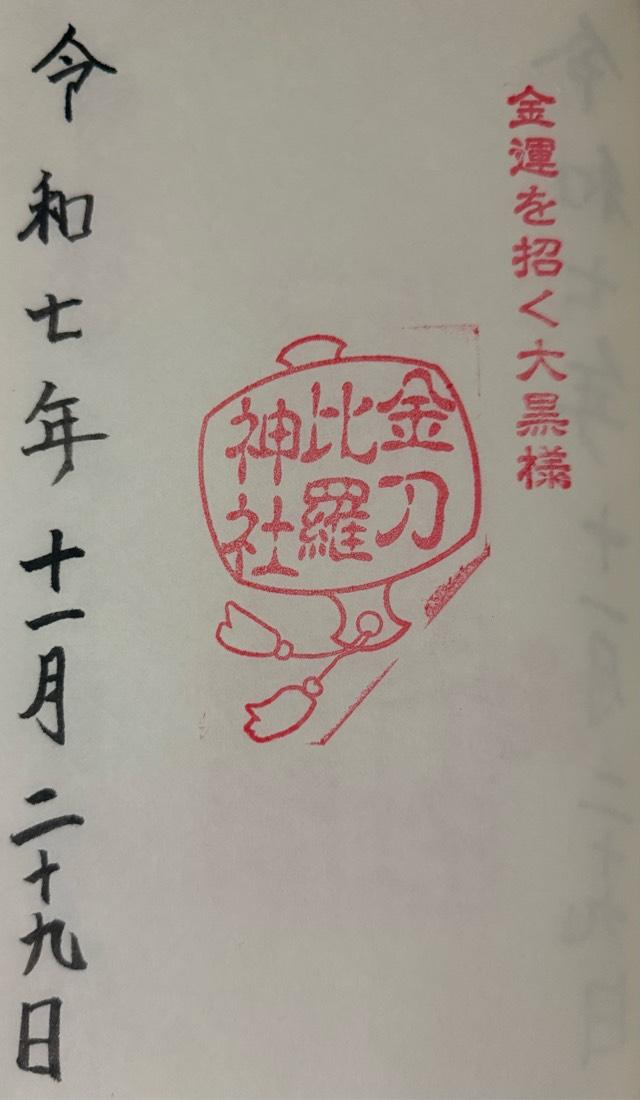 金運を招く大黒様
金刀
比羅
神社
令和七年十一月二十九日